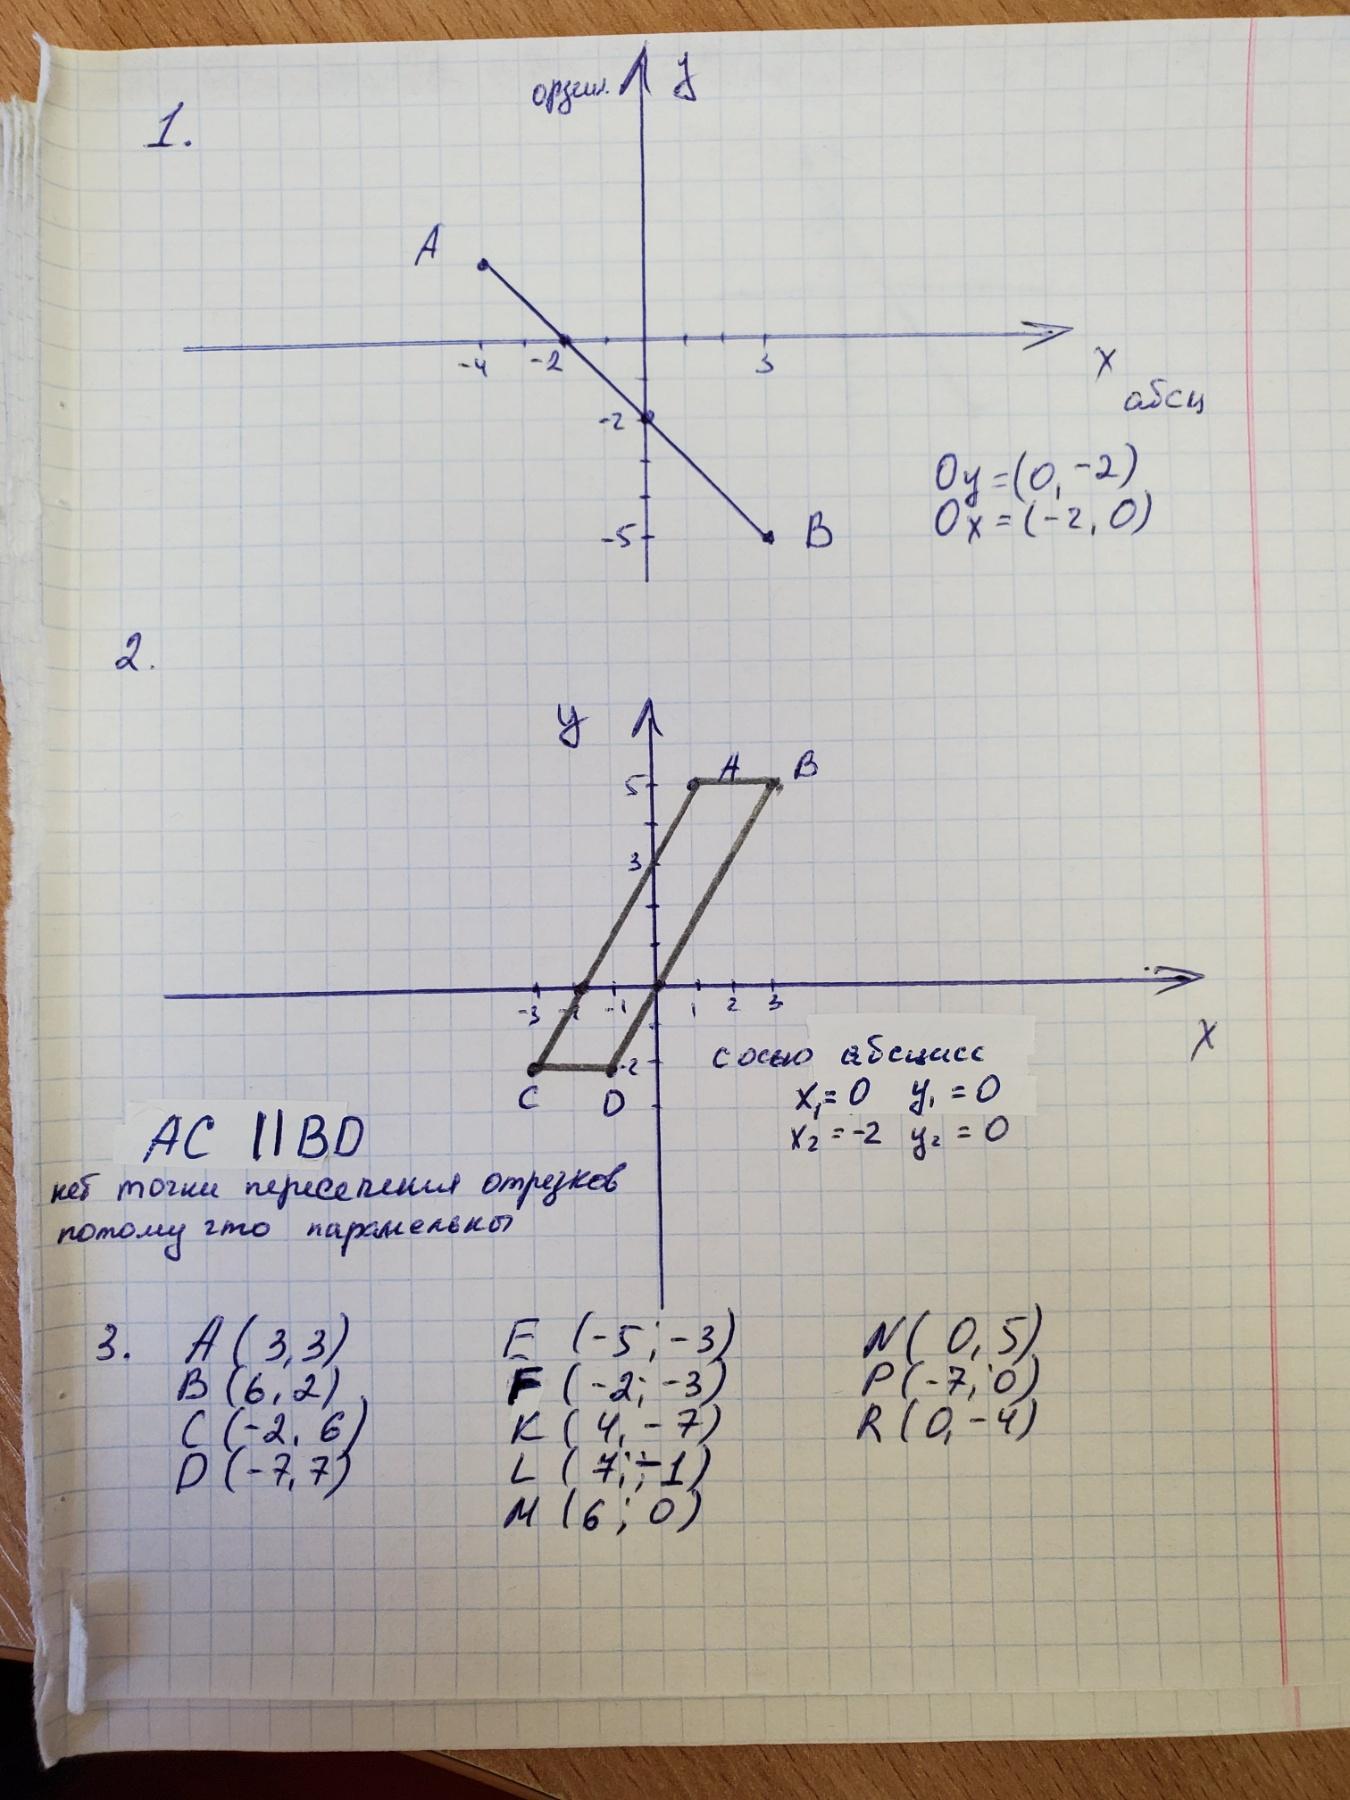 1.
ордин.
y
A
-4
-2
3
x
абсц
-2
Oy = (0, -2)
Ox = (-2, 0)
-5
B
2.
y
5
A
B
3
-3
-2
-1
1
2
3
x
-2
C
D
с осью абсцисс
x₁ = 0 y₁ = 0
x₂ = -2 y₂ = 0
AC || BD
нет точки пересечения отрезков
потому что
3.
A (3, 3)
B (6, 2)
C (-2, 6)
D (-7, 7)
E (-5; -3)
F (-2; -3)
K (4, -7)
L (7; -1)
M (6; 0)
N (0, 5)
P (-7; 0)
R (0, -4)